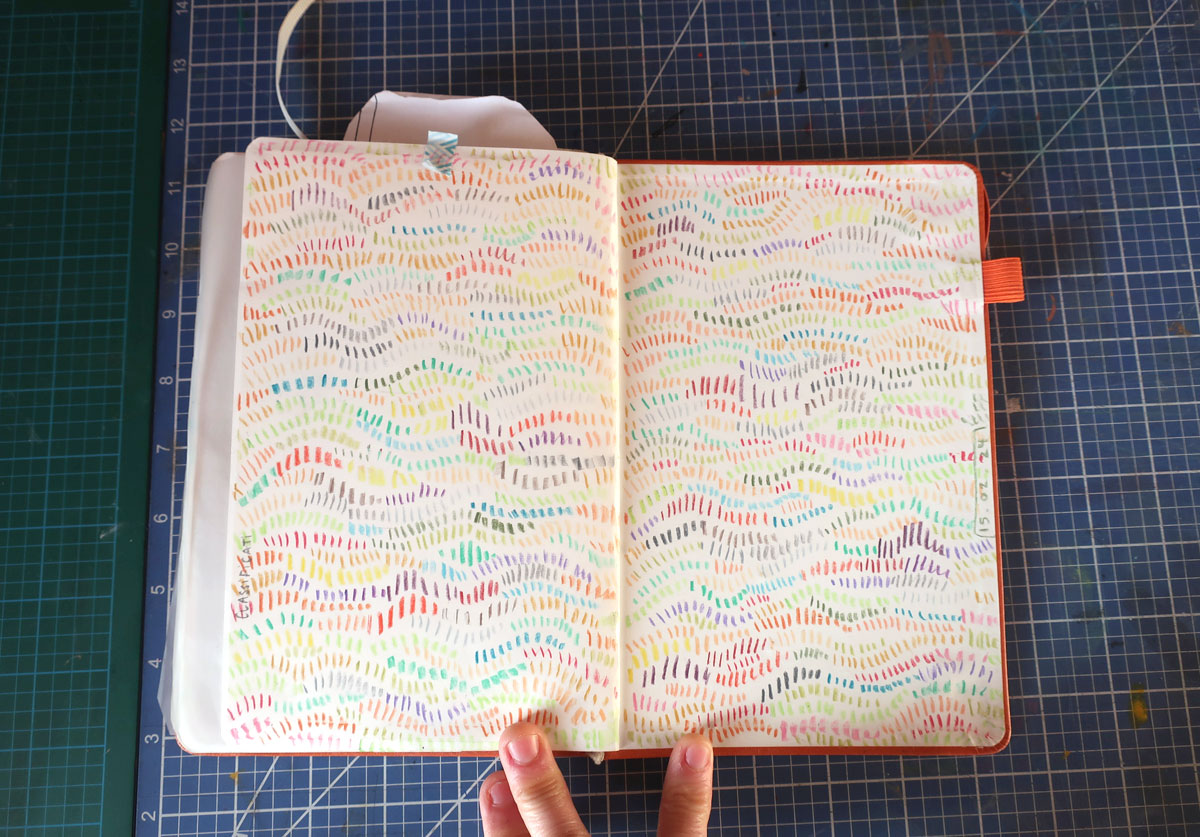 14
13
12
11
10
9
8
7
6
5
4
3
2
15.02.24